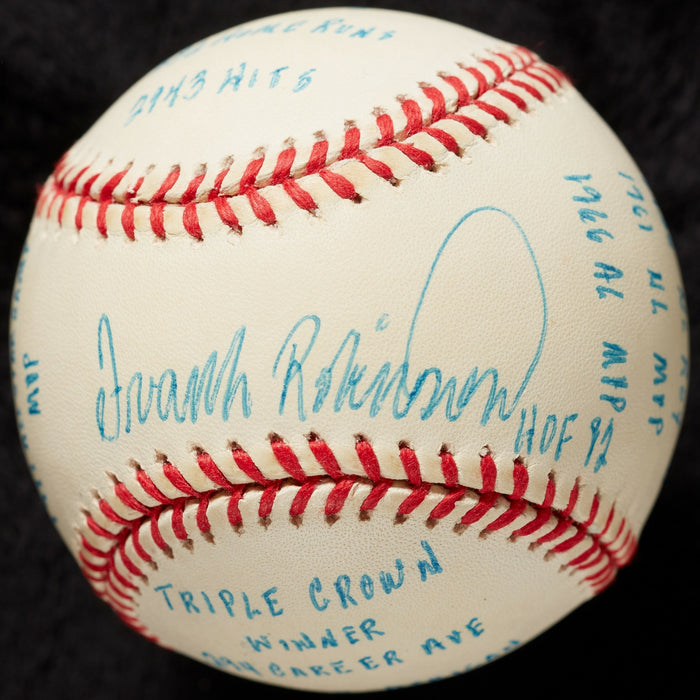 HOME RUNS
2943 HITS
Frank Robinson
HOF 82
1961 NL MVP
1966 AL MVP
MVP
TRIPLE CROWN
WINNER
.294 CAREER AVE